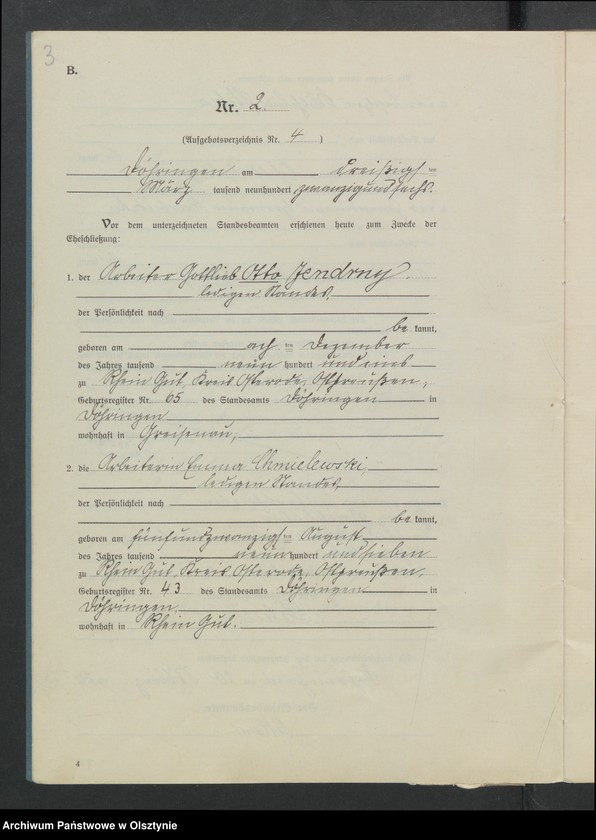 3
B.
Nr. 2.
(Aufgebotsverzeichnis Nr. 4 )
Döhringen am dreißigsten
März tausend neunhundert zwanzigundsechs.
Vor dem unterzeichneten Standesbeamten erschienen heute zum Zwecke der
Eheschließung:
1. der Arbeiter Gottlieb Otto Jendrny.
ledigen Standes,
der Persönlichkeit nach
be kannt,
geboren am acht ten Dezember
des Jahres tausend neun hundert und eins
zu Rhein Gut, Kreis Osterode, Ostpreußen,
Geburtsregister Nr. 65 des Standesamts Döhringen in
Döhringen
wohnhaft in
2. die Arbeiterin Emma Chmielewski,
ledigen Standes,
der Persönlichkeit nach
be kannt,
geboren am fünfundzwanzigsten August
des Jahres tausend neun hundert und sieben
zu Rhein Gut, Kreis Osterode, Ostpreußen,
Geburtsregister Nr. 43 des Standesamts Döhringen in
Döhringen
wohnhaft in Rhein Gut.
4
Archiwum Państwowe w Olsztynie